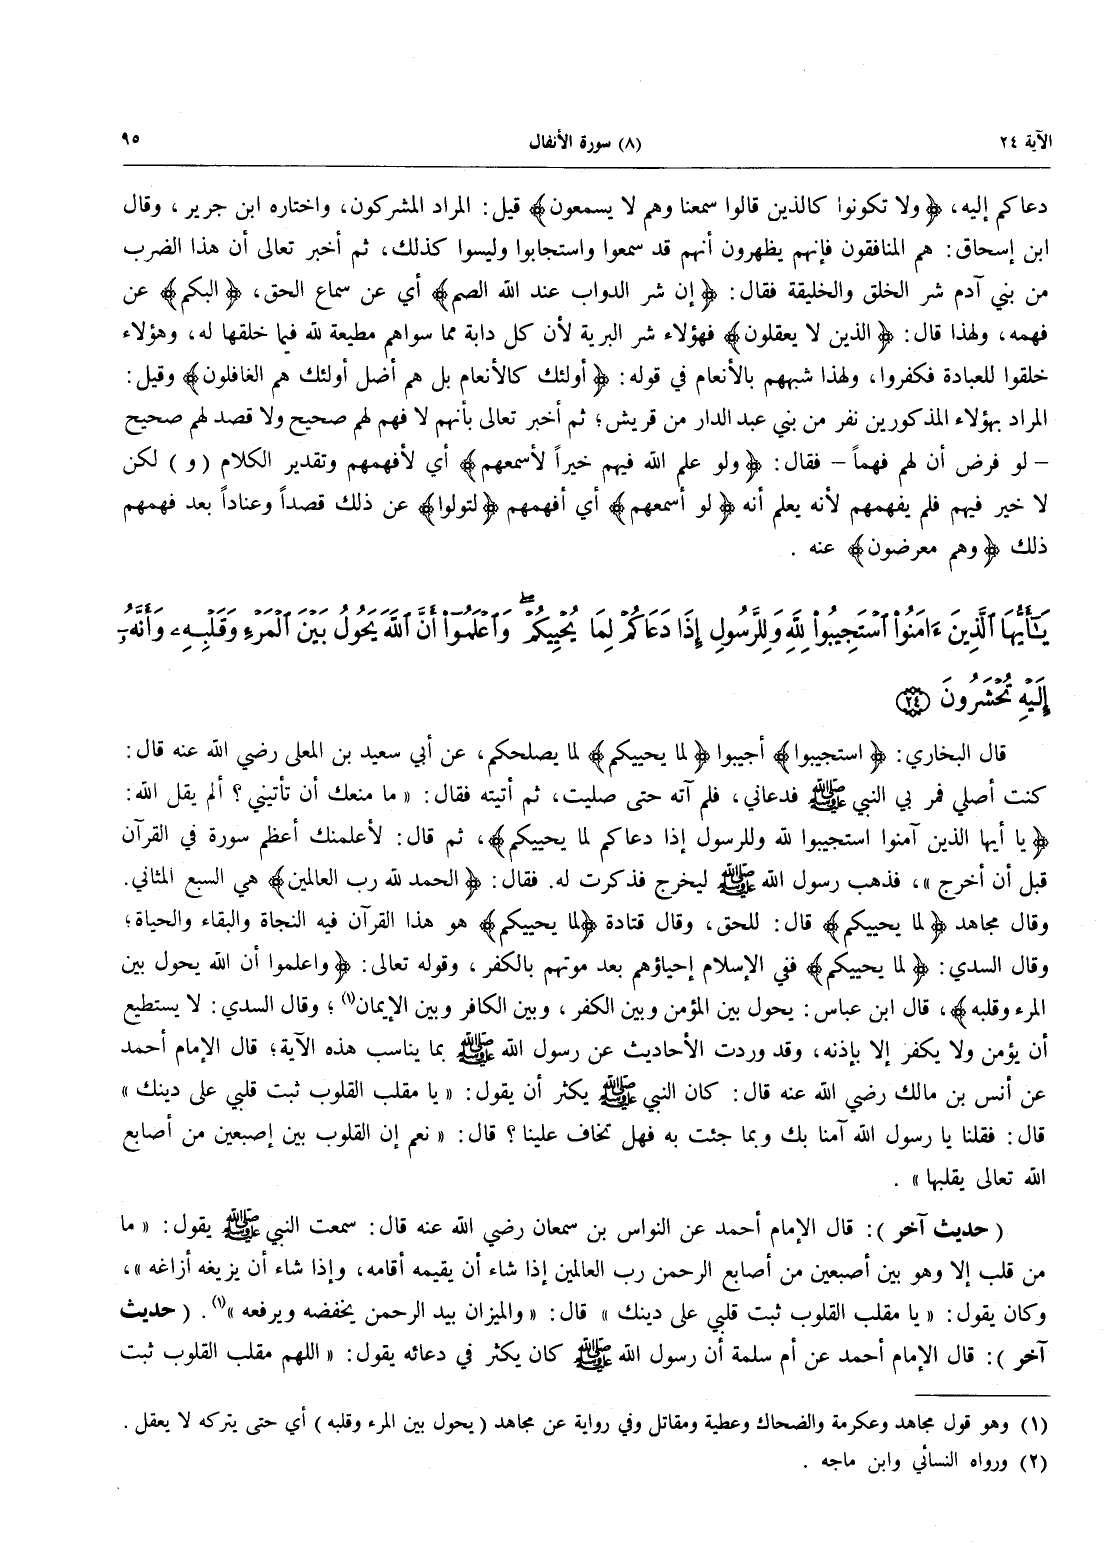 الآية ٢٤ (٨) سورة الأنفال ٩٥
دعاكم إليه، ﴿ولا تكونوا كالذين قالوا سمعنا وهم لا يسمعون﴾ قيل: المراد المشركون، واختاره ابن جرير، وقال
ابن إسحاق: هم المنافقون فإنهم يظهرون أنهم قد سمعوا واستجابوا وليسوا كذلك، ثم أخبر تعالى أن هذا الضرب
من بني آدم شر الخلق والخليقة فقال: ﴿إن شر الدواب عند الله الصم﴾ أي عن سماع الحق، ﴿البكم﴾ عن
فهمه، ولهذا قال: ﴿الذين لا يعقلون﴾ فهؤلاء شر البرية لأن كل دابة مما سواهم مطيعة لله فيما خلقها له، وهؤلاء
خلقوا للعبادة فكفروا، ولهذا شبههم بالأنعام في قوله: ﴿أولئك كالأنعام بل هم أضل أولئك هم الغافلون﴾ وقيل:
المراد بهؤلاء المذكورين نفر من بني عبد الدار من قريش؛ ثم أخبر تعالى بأنهم لا فهم لهم صحيح ولا قصد لهم صحيح
– لو فرض أن لهم فهماً – فقال: ﴿ولو علم الله فيهم خيراً لأسمعهم﴾ أي لأفهمهم وتقدير الكلام (و) لكن
لا خير فيهم فلم يفهمهم لأنه يعلم أنه ﴿لو أسمعهم﴾ أي أفهمهم ﴿لتولوا﴾ عن ذلك قصداً وعناداً بعد فهمهم
ذلك ﴿وهم معرضون﴾ عنه .
يَـٰٓأَيُّهَا ٱلَّذِينَ ءَامَنُوا۟ ٱسْتَجِيبُوا۟ لِلَّهِ وَلِلرَّسُولِ إِذَا دَعَاكُمْ لِمَا يُحْيِيكُمْ ۖ وَٱعْلَمُوٓا۟ أَنَّ ٱللَّهَ يَحُولُ بَيْنَ ٱلْمَرْءِ وَقَلْبِهِۦ وَأَنَّهُۥٓ
إِلَيْهِ تُحْشَرُونَ ﴿٢٤﴾
قال البخاري: ﴿استجيبوا﴾ أجيبوا ﴿لما يحييكم﴾ لما يصلحكم، عن أبي سعيد بن المعلى رضي الله عنه قال:
كنت أصلي فمر بي النبي ﷺ فدعاني، فلم آته حتى صليت، ثم أتيته فقال: «ما منعك أن تأتيني؟ ألم يقل الله:
﴿يا أيها الذين آمنوا استجيبوا لله وللرسول إذا دعاكم لما يحييكم﴾، ثم قال: لأعلمنك أعظم سورة في القرآن
قبل أن أخرج»، فذهب رسول الله ﷺ ليخرج فذكرت له. فقال: ﴿الحمد لله رب العالمين﴾ هي السبع المثاني.
وقال مجاهد ﴿لما يحييكم﴾ قال: للحق، وقال قتادة ﴿لما يحييكم﴾ هو هذا القرآن فيه النجاة والبقاء والحياة؛
وقال السدي: ﴿لما يحييكم﴾ ففي الإسلام إحياؤهم بعد موتهم بالكفر، وقوله تعالى: ﴿واعلموا أن الله يحول بين
المرء وقلبه﴾، قال ابن عباس: يحول بين المؤمن وبين الكفر، وبين الكافر وبين الإيمان(١)؛ وقال السدي: لا يستطيع
أن يؤمن ولا يكفر إلا بإذنه، وقد وردت الأحاديث عن رسول الله ﷺ بما يناسب هذه الآية؛ قال الإمام أحمد
عن أنس بن مالك رضي الله عنه قال: كان النبي ﷺ يكثر أن يقول: «يا مقلب القلوب ثبت قلبي على دينك»
قال: فقلنا يا رسول الله آمنا بك وبما جئت به فهل تخاف علينا؟ قال: «نعم إن القلوب بين إصبعين من أصابع
الله تعالى يقلبها» .
(حديث آخر): قال الإمام أحمد عن النواس بن سمعان رضي الله عنه قال: سمعت النبي ﷺ يقول: «ما
من قلب إلا وهو بين أصبعين من أصابع الرحمن رب العالمين إذا شاء أن يقيمه أقامه، وإذا شاء أن يزيغه أزاغه»،
وكان يقول: «يا مقلب القلوب ثبت قلبي على دينك» قال: «والميزان بيد الرحمن يخفضه ويرفعه»(١). (حديث
آخر): قال الإمام أحمد عن أم سلمة أن رسول الله ﷺ كان يكثر في دعائه يقول: «اللهم مقلب القلوب ثبت
(١) وهو قول مجاهد وعكرمة والضحاك وعطية ومقاتل وفي رواية عن مجاهد (يحول بين المرء وقلبه) أي حتى يتركه لا يعقل.
(٢) ورواه النسائي وابن ماجه .